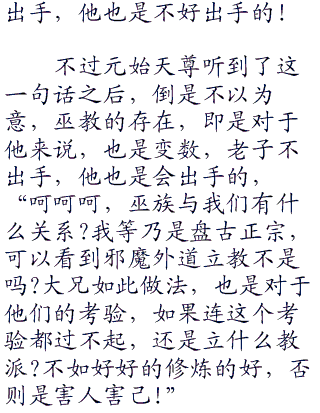 出手，他也是不好出手的！
不过元始天尊听到了这
一句话之后，倒是不以为
意，巫教的存在，即是对于
他来说，也是变数，老子不
出手，他也是会出手的，
“呵呵呵，巫族与我们有什
么关系?我等乃是盘古正宗，
可以看到邪魔外道立教不是
吗?大兄如此做法，也是对于
他们的考验，如果连这个考
验都过不起，还是立什么教
派?不如好好的修炼的好，否
则是害人害己!”